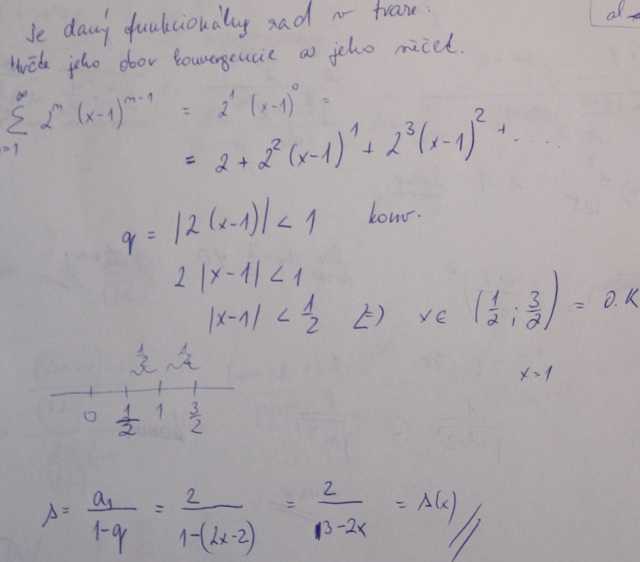 Je daný funkcionálny rad v tvare:
Určte jeho obor konvergencie a jeho súčet.
al
∞
∑ 2^n (x-1)^{n-1} = 2^1 (x-1)^0 =
n=1
= 2 + 2^2 (x-1)^1 + 2^3 (x-1)^2 + ....
q = |2(x-1)| < 1 konv.
2 |x-1| < 1
|x-1| < 1/2 (=) x∈ (1/2 ; 3/2) = O.K
x=1
1/2 1/2
0 1/2 1 3/2
s = a_1/(1-q) = 2/(1-(2x-2)) = 2/(3-2x) = s(x)